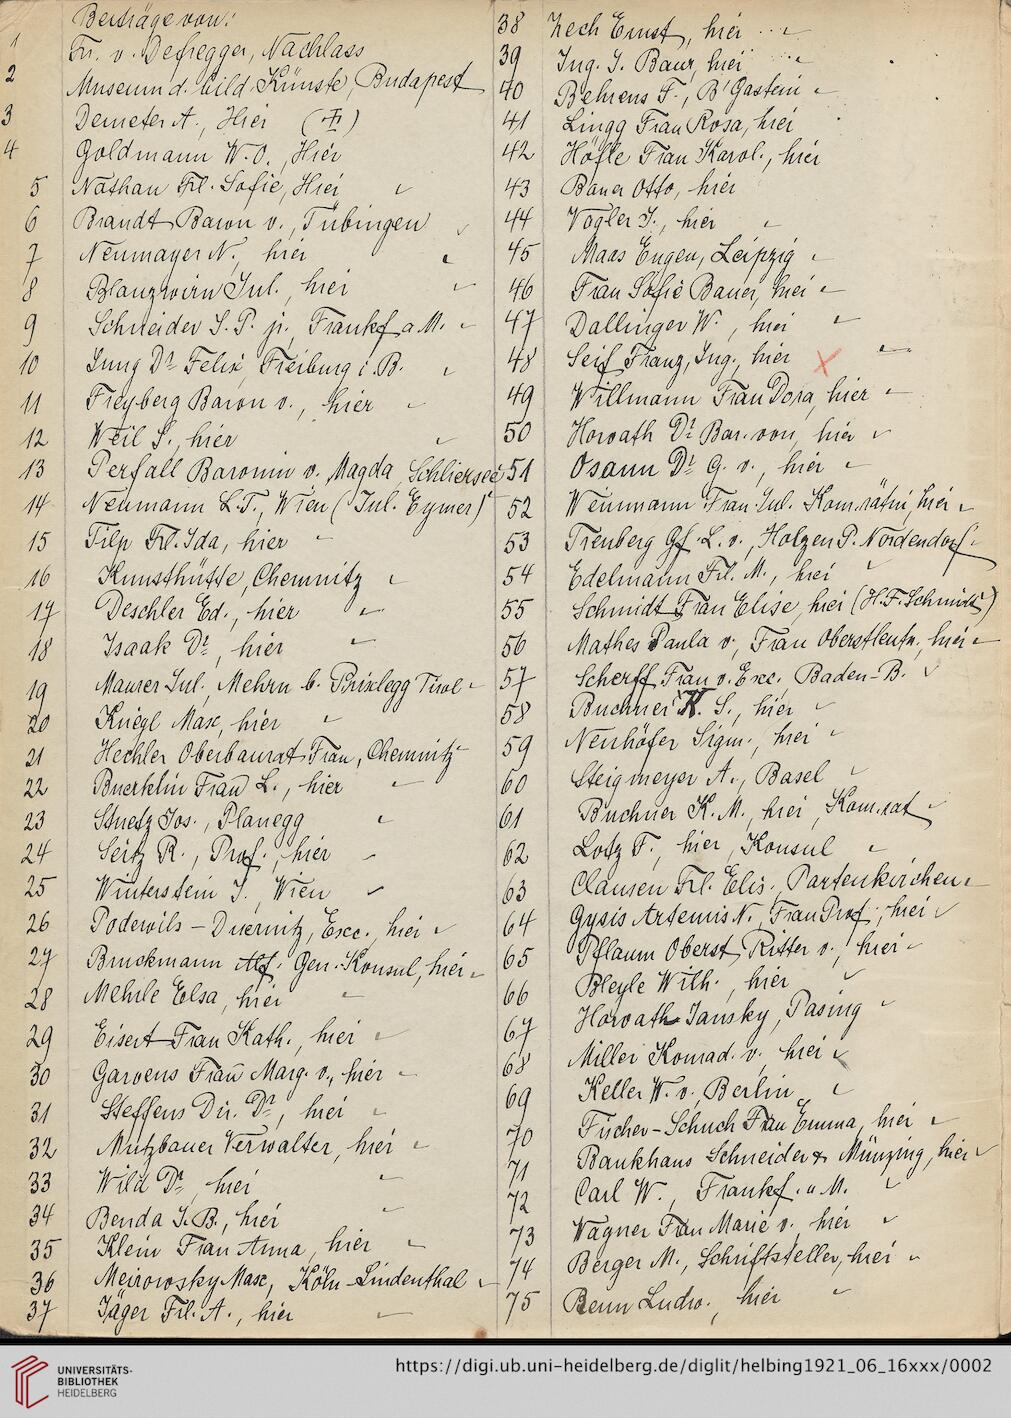 Beiträge von:
1 Fr. v. Defregger, Nachlass
2 Museum d. bild. Künste, Budapest
3 Demeter A., Hier
4 Goldmann W. O., Hier
5 Nathan Frl. Sofie, Hier
6 Brandt Baron v., Tübingen
7 Neumayer N., hier
8 Blanzwirn Jul., hier
9 Schneider S. P. jr., Frankf a M.
10 Jung Dr. Felix, Freiburg i. B.
11 Freyberg Baron v., hier
12 Weil S., hier
13 Perfall Baronin v. Magda, Schliersee
14 Neumann L. T., Wien (Jul. Eymer)
15 Filp Frl. Ida, hier
16 Kunsthütte, Chemnitz
17 Deschler Ed., hier
18 Isaak Dr., hier
19 Maurer Jul., Mehrn b. Brixlegg Tirol
20 Kriegl Max, hier
21 Hechler Oberbaurat Frau, Chemnitz
22 Buerklin Frau L., hier
23 Stuetz Jos., Planegg
24 Seitz R., Prof., hier
25 Winterstein J., Wien
26 Podewils - Duernitz, Exc., hier
27 Bruckmann Alf. Gen. Konsul, hier
28 Mehrle Elsa, hier
29 Eisert Frau Kath., hier
30 Garvens Frau Marg. v., hier
31 Steffens Dir. Dr., hier
32 Mutzbauer Verwalter, hier
33 Wild Dr., hier
34 Benda S. B., hier
35 Klein Frau Anna, hier
36 Meirowsky Max, Köln-Lindenthal
37 Jäger Frl. A., hier
38 Zech Ernst, hier
39 Ing. J. Baur, hier
40 Behrens F., B' Gastein
41 Lingg Frau Rosa, hier
42 Höfle Frau Karol., hier
43 Bauer Otto, hier
44 Vogler J., hier
45 Maas Eugen, Leipzig
46 Frau Sofie Bauer, hier
47 Dallinger W., hier
48 Seif Franz, Ing., hier
49 Willmann Frau Dora, hier
50 Horvath Dr. Bar. von, hier
51 Osann Dr. G. v., hier
52 Weinmann Frau Jul. Kom.rätin, hier
53 Treuberg Gf. L. v., Holzen P. Nordendorf
54 Edelmann Frl. M., hier
55 Schmidt Frau Elise, hier (H. F. Schmidt)
56 Mathes Paula v., Frau Oberstleutn., hier
57 Scherff Frau v. Exc. Baden-B.
58 Buchner K. S., hier
59 Neuhöfer Sigm., hier
60 Steigmeyer A., Basel
61 Buchner K. M., hier, Kom.rat
62 Lotz F., hier, Konsul
63 Clausen Frl. Elis., Partenkirchen
64 Gysis Artemis N., Frau Prof., hier
65 Pflaum Oberst, Ritter v., hier
66 Bleyle Wilh., hier
67 Horvath-Jansky, Pasing
68 Miller Konrad. v., hier
69 Keller W. v., Berlin
70 Fischer-Schuch Frau Emma, hier
71 Bankhaus Schneider & Münzing, hier
72 Carl W., Frankf. a M.
73 Wagner Frau Marie v., hier
74 Berger M., Schriftsteller, hier
75 Benn Ludw., hier
UNIVERSITÄTS-
BIBLIOTHEK
HEIDELBERG
https://digi.ub.uni-heidelberg.de/diglit/helbing1921_06_16xxx/0002